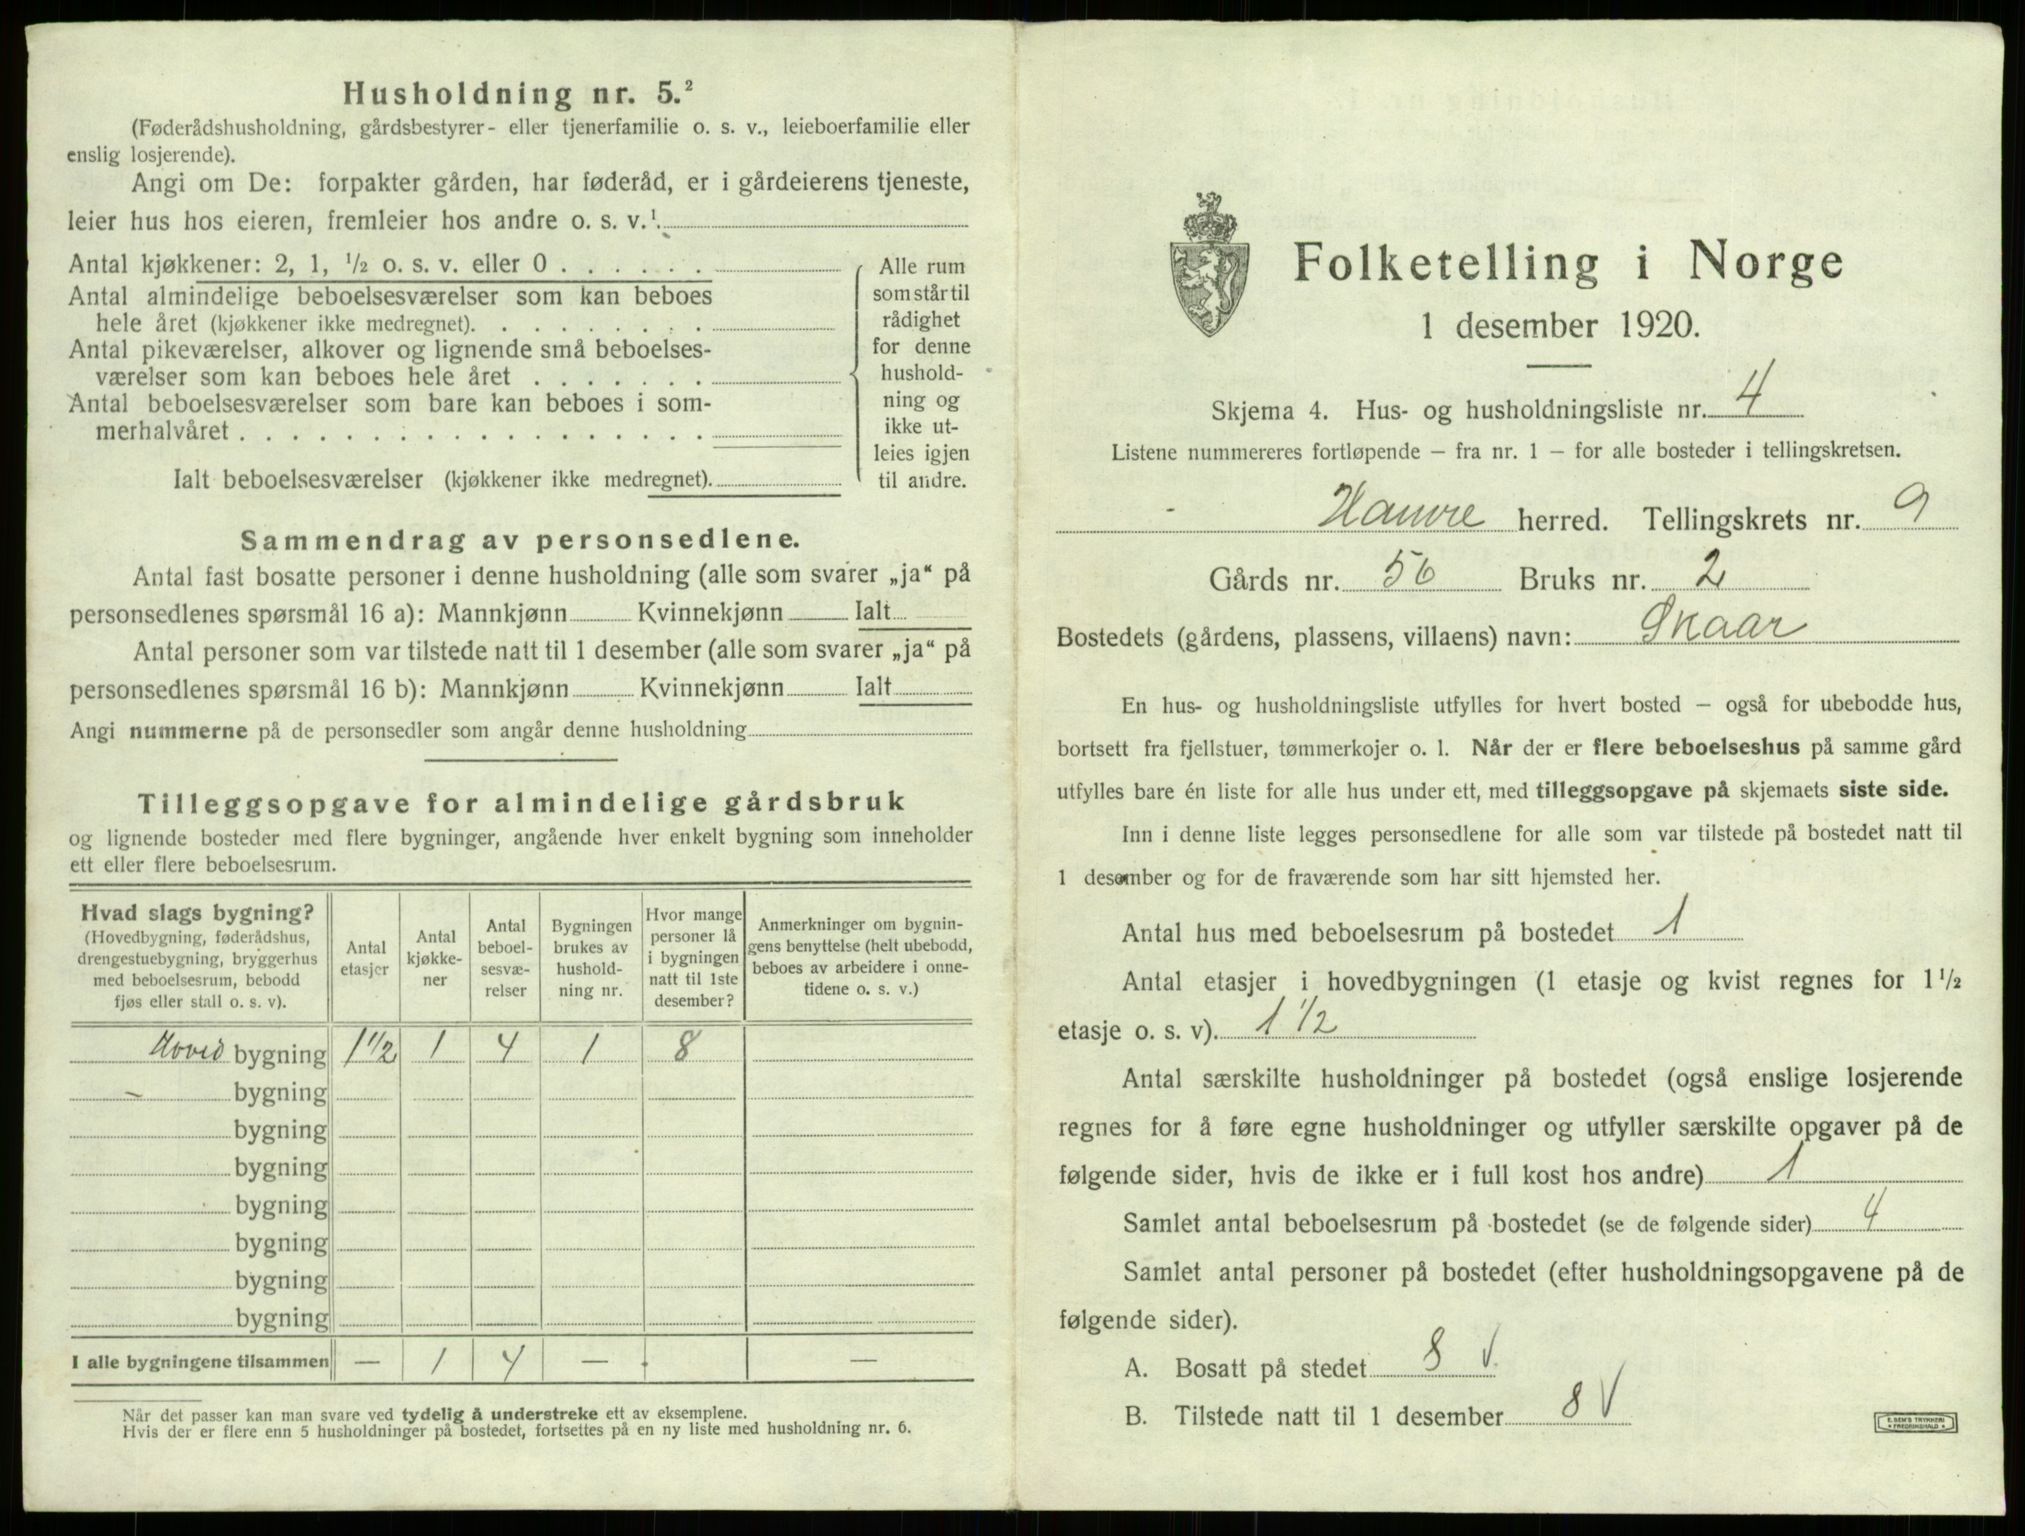 Husholdning nr. 5.²
(Føderådshusholdning, gårdsbestyrer- eller tjenerfamilie o. s. v., leieboerfamilie eller
enslig losjerende).
Angi om De: forpakter gården, har føderåd, er i gårdeierens tjeneste,
leier hus hos eieren, fremleier hos andre o. s. v.¹
Antal kjøkkener: 2, 1, ½ o. s. v. eller 0 . . . . . .
Antal almindelige beboelsesværelser som kan beboes
hele året (kjøkkener ikke medregnet). . . . . . . . .
Antal pikeværelser, alkover og lignende små beboelses-
værelser som kan beboes hele året . . . . . . .
Antal beboelsesværelser som bare kan beboes i som-
merhalvåret . . . . . . . . . . . . . . . . . .
Ialt beboelsesværelser (kjøkkener ikke medregnet).
Alle rum
som står til
rådighet
for denne
hushold-
ning og
ikke ut-
leies igjen
til andre.
Sammendrag av personsedlene.
Antal fast bosatte personer i denne husholdning (alle som svarer „ja“ på
personsedlenes spørsmål 16 a): Mannkjønn Kvinnekjønn Ialt
Antal personer som var tilstede natt til 1 desember (alle som svarer „ja“ på
personsedlenes spørsmål 16 b): Mannkjønn Kvinnekjønn Ialt
Angi nummerne på de personsedler som angår denne husholdning
Tilleggsopgave for almindelige gårdsbruk
og lignende bosteder med flere bygninger, angående hver enkelt bygning som inneholder
ett eller flere beboelsesrum.
Hvad slags bygning?
(Hovedbygning, føderådshus,
drengestuebygning, bryggerhus
med beboelsesrum, bebodd
fjøs eller stall o. s. v).
Antal
etasjer
Antal
kjøkke-
ner
Antal
beboel-
sesvæ-
relser
Bygningen
brukes av
hushold-
ning nr.
Hvor mange
personer lå
i bygningen
natt til 1ste
desember?
Anmerkninger om bygnin-
gens benyttelse (helt ubebodd,
beboes av arbeidere i onne-
tidene o. s. v.)
Hoved bygning 1½ 1 4 1 8
bygning
bygning
bygning
bygning
bygning
bygning
bygning
I alle bygningene tilsammen — 1 4 — —
Når det passer kan man svare ved tydelig å understreke ett av eksemplene.
Hvis der er flere enn 5 husholdninger på bostedet, fortsettes på en ny liste med husholdning nr. 6.
Folketelling i Norge
1 desember 1920.
Skjema 4. Hus- og husholdningsliste nr. 4
Listene nummereres fortløpende — fra nr. 1 — for alle bosteder i tellingskretsen.
Hamre herred. Tellingskrets nr. 9
Gårds nr. 56 Bruks nr. 2
Bostedets (gårdens, plassens, villaens) navn: Skaar
En hus- og husholdningsliste utfylles for hvert bosted — også for ubebodde hus,
bortsett fra fjellstuer, tømmerkojer o. l. Når der er flere beboelseshus på samme gård
utfylles bare én liste for alle hus under ett, med tilleggsopgave på skjemaets siste side.
Inn i denne liste legges personsedlene for alle som var tilstede på bostedet natt til
1 desember og for de fraværende som har sitt hjemsted her.
Antal hus med beboelsesrum på bostedet 1
Antal etasjer i hovedbygningen (1 etasje og kvist regnes for 1½
etasje o. s. v). 1½
Antal særskilte husholdninger på bostedet (også enslige losjerende
regnes for å føre egne husholdninger og utfyller særskilte opgaver på de
følgende sider, hvis de ikke er i full kost hos andre) 1
Samlet antal beboelsesrum på bostedet (se de følgende sider) 4
Samlet antal personer på bostedet (efter husholdningsopgavene på de
følgende sider).
A. Bosatt på stedet 8 V
B. Tilstede natt til 1 desember 8 V
E. SEM'S TRYKKERI
FREDRIKSHALD